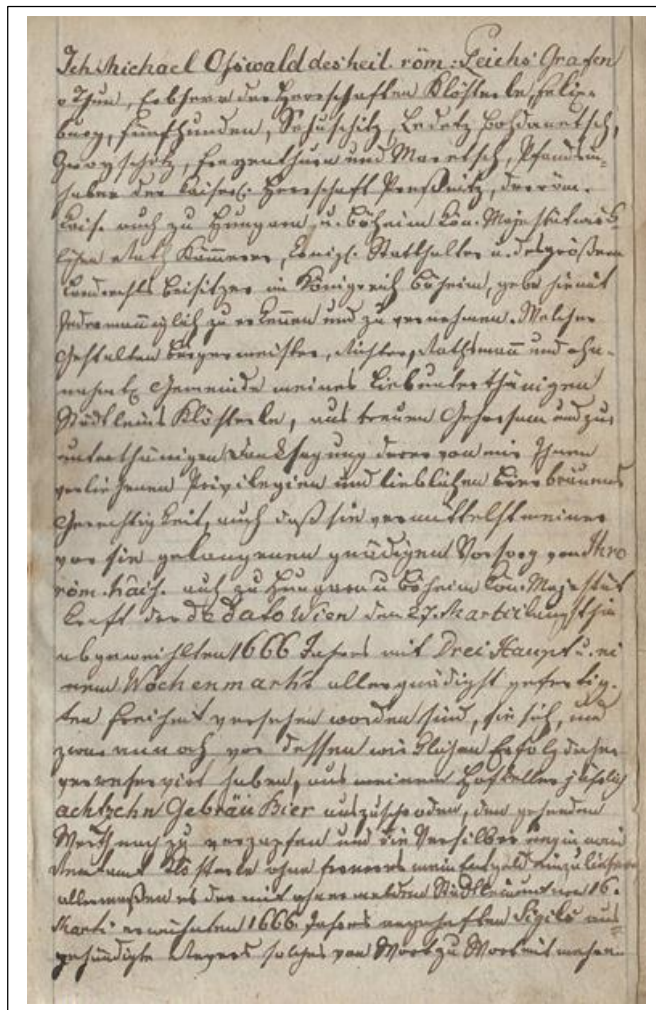 Ich Michael Oswald des heil. röm: Reichs Grafen
v Thun, Erbherr der Herrschaften Klösterle, Felix-
burg, Fünfhunden, Sehuschitz, Ledetz Bohdanetsch,
und Maretsch, Pfandin-
haber der kaiserl. Herrschaft Preßnitz, der röm.
Kais. auch zu Hungarn u. Böheim Kön. Majestät würk-
lichen Rath Kämmerer, Königl. Statthalter u. des größern
Landrechts Beisitzer im Königreich Böheim, gebe hiemit
Jedermänniglich zu erkennen und zu vernehmen. Welcher
Gestalten Bürgermeister, Richter, Rathsmann und
Gemeinde meines Lieb unterthänigen
Städtleins Klösterle, aus treuen Gehorsam und zu
unterthänigen Danksagung derer von mir Ihnen
verliehenen Privilegien und lieblichen Bierbräuens
Gerechtigkeit, auch daß sie vermittelst meiner
vor sie gelangenen gnädigen Vorsorg von Ihro
röm. Kais. auch zu Hungarn u Böheim Kön. Majestät
Kraft der de Dato Wien den 27. Martii längsthin
abgeweihlten 1666 Jahrs mit Drei Haupt u. ei
nem Wochenmarkt allergnädigst gefertig-
ten Freiheit versehen worden sind, sie sich, und
zwar annoch vor dessen würklichen Erfolg dahin
reverservirt haben, aus meinem Hofkeller jährlich
achtzehn Gebräu Bier auszuschroden, den gehenden
Werth nach zu verzapfen und die Versilberung in mein
Rentamt Klösterle ohne ferneres mein Entgeld einzuliefern
allermaßen es der mit Städtlein unterm 16.
Marti erwähnten 1666 Jahrs angehaften Sigils aus-
gehändigte Revers solches von Wort zu Wort mit mehrern